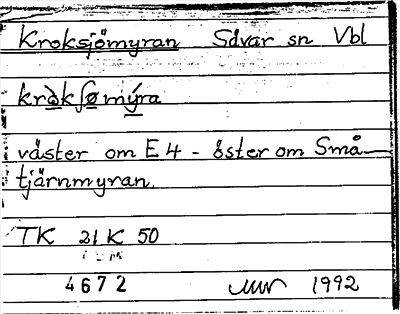 Kroksjömyran Sävar sn Vbl
krokʃømyra
väster om E4 - öster om Små-
tjärnmyran.
TK 21K 50
4672 1992